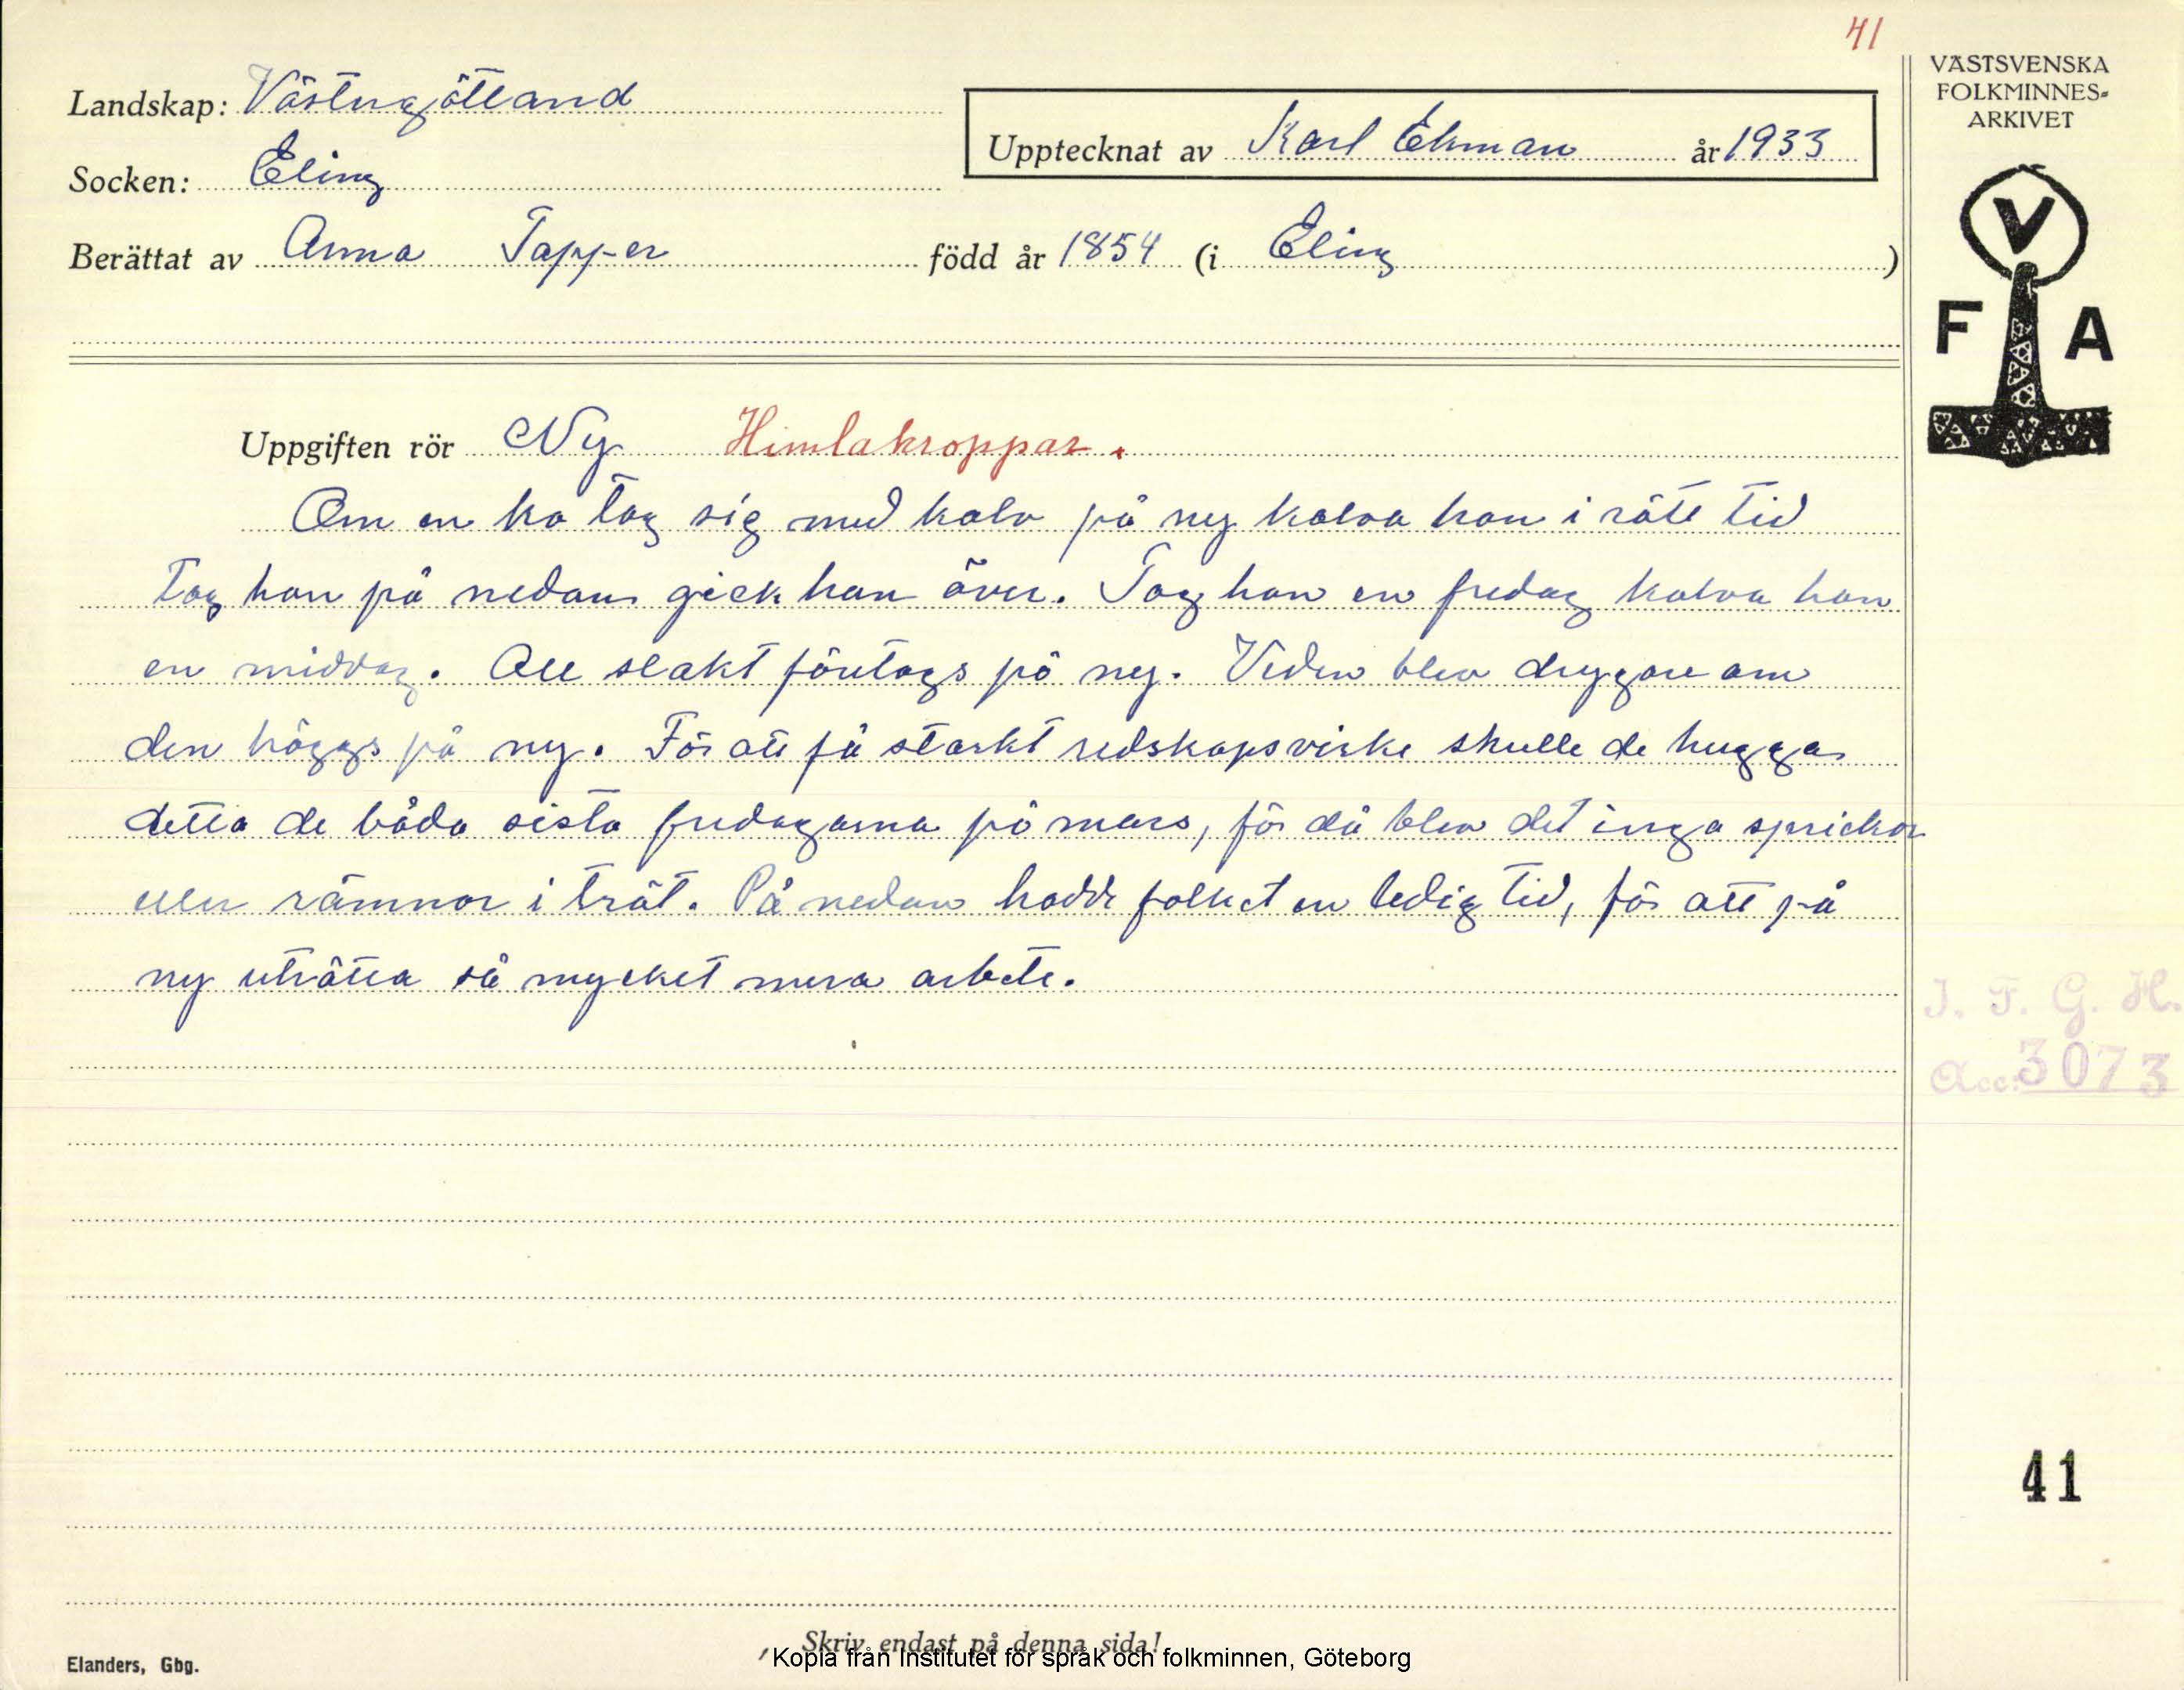 41
Landskap: Västergötland
Socken: Eling
Upptecknat av Karl Ekman år 1933
Berättat av Anna Tapper född år 1854 (i Eling)
VÄSTSVENSKA
FOLKMINNES-
ARKIVET
V
F A
Uppgiften rör Ny Himlakroppar.
Om en ko tog sig med kalv på ny kalva hon i rätt tid
Tog hon på nedan gick hon över. Tog hon en fredag kalva hon
en middag. All slakt företogs på ny. Veden blev drygare om
den höggs på ny. För att få starkt redskapsvirke skulle de hugga
detta de båda sista fredagarna på mars, för då blev det inga sprickor
eller rämnor i trät. På nedan hadde folket en ledig tid, för att på
ny uträtta så mycket mera arbete.
I. F. G. H.
Acc: 3073
41
Skriv endast på denna sida!
Elanders, Gbg.
Kopia från Institutet för språk och folkminnen, Göteborg